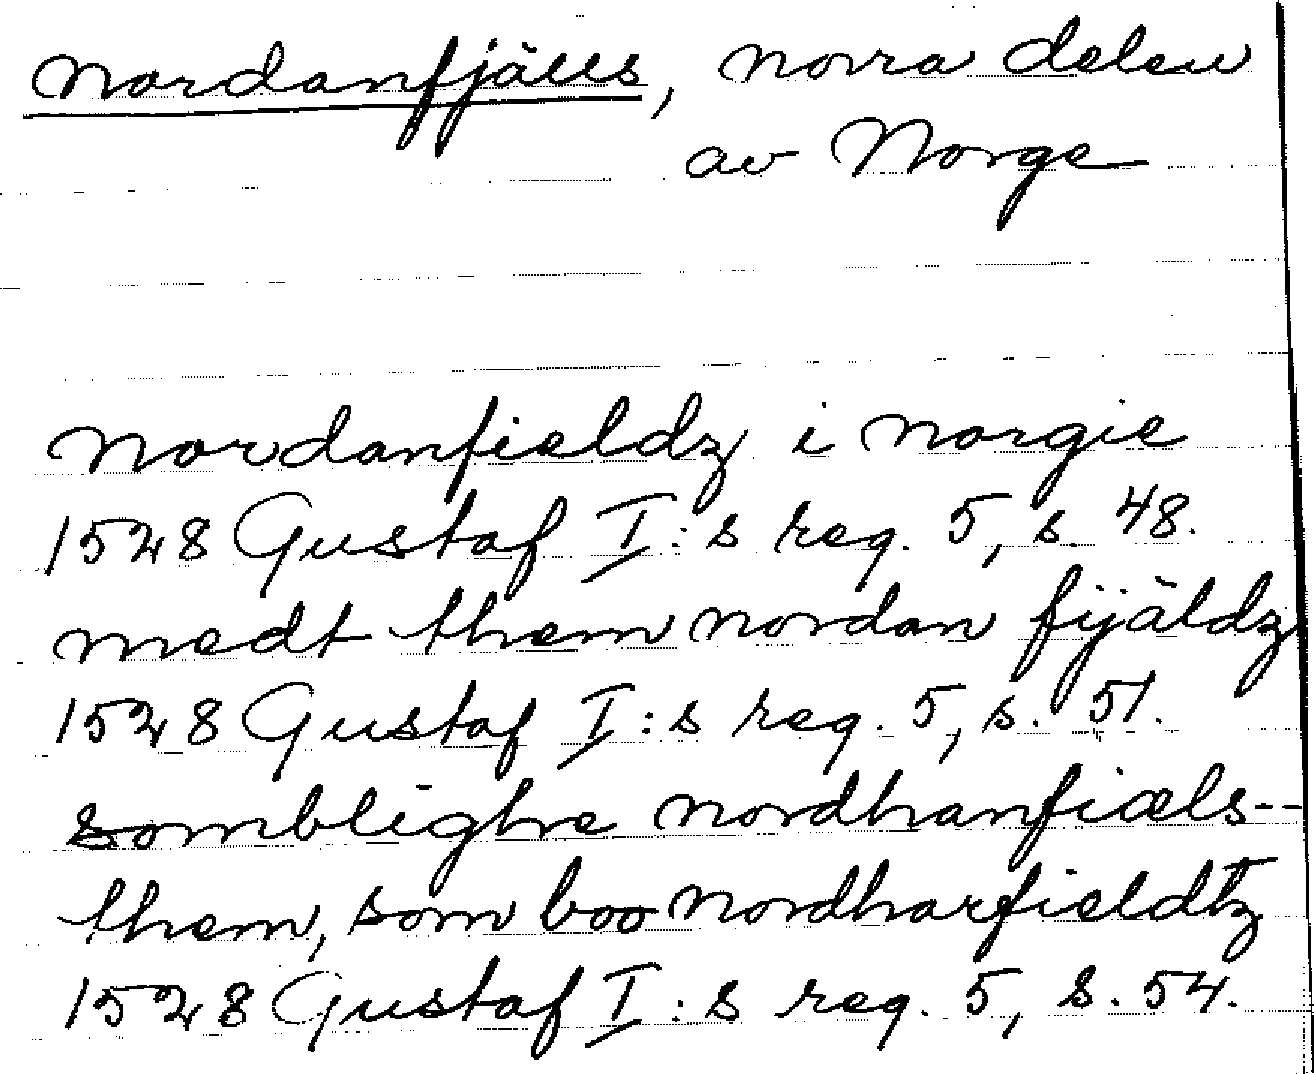 Nordanfjälls, norra delen
av Norge
nordanfieldz i norgie
1528 Gustaf I:s reg. 5, s. 48.
medt them nordan fijäldz
1528 Gustaf I:s reg. 5, s. 51.
somblighe nordhanfiæls--
them, som boo nordharfieldtz
1528 Gustaf I:s reg. 5, s. 54.